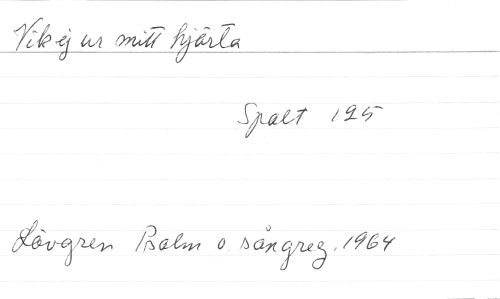 Vik ej ur mitt hjärta
Spalt 125
Lövgren Psalm o. sångreg. 1964